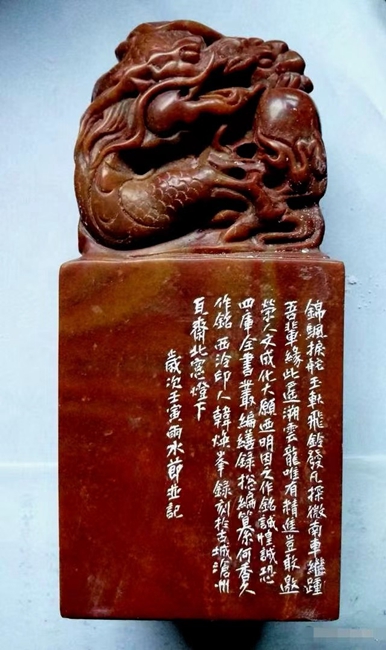 錦颿捩舵玉軑飛輪發凡探微南車繼踵
吾輩緣此遥溯雲龍唯有精進豈敢邀
榮人文成化大願西明因之作銘誠惶誠恐
四庫全書叢編續錄總編纂余何香久
作銘西泠印人韓焕峯錄刻於古城滄州
瓦齋北窻燈下
歲次壬寅雨水節並記